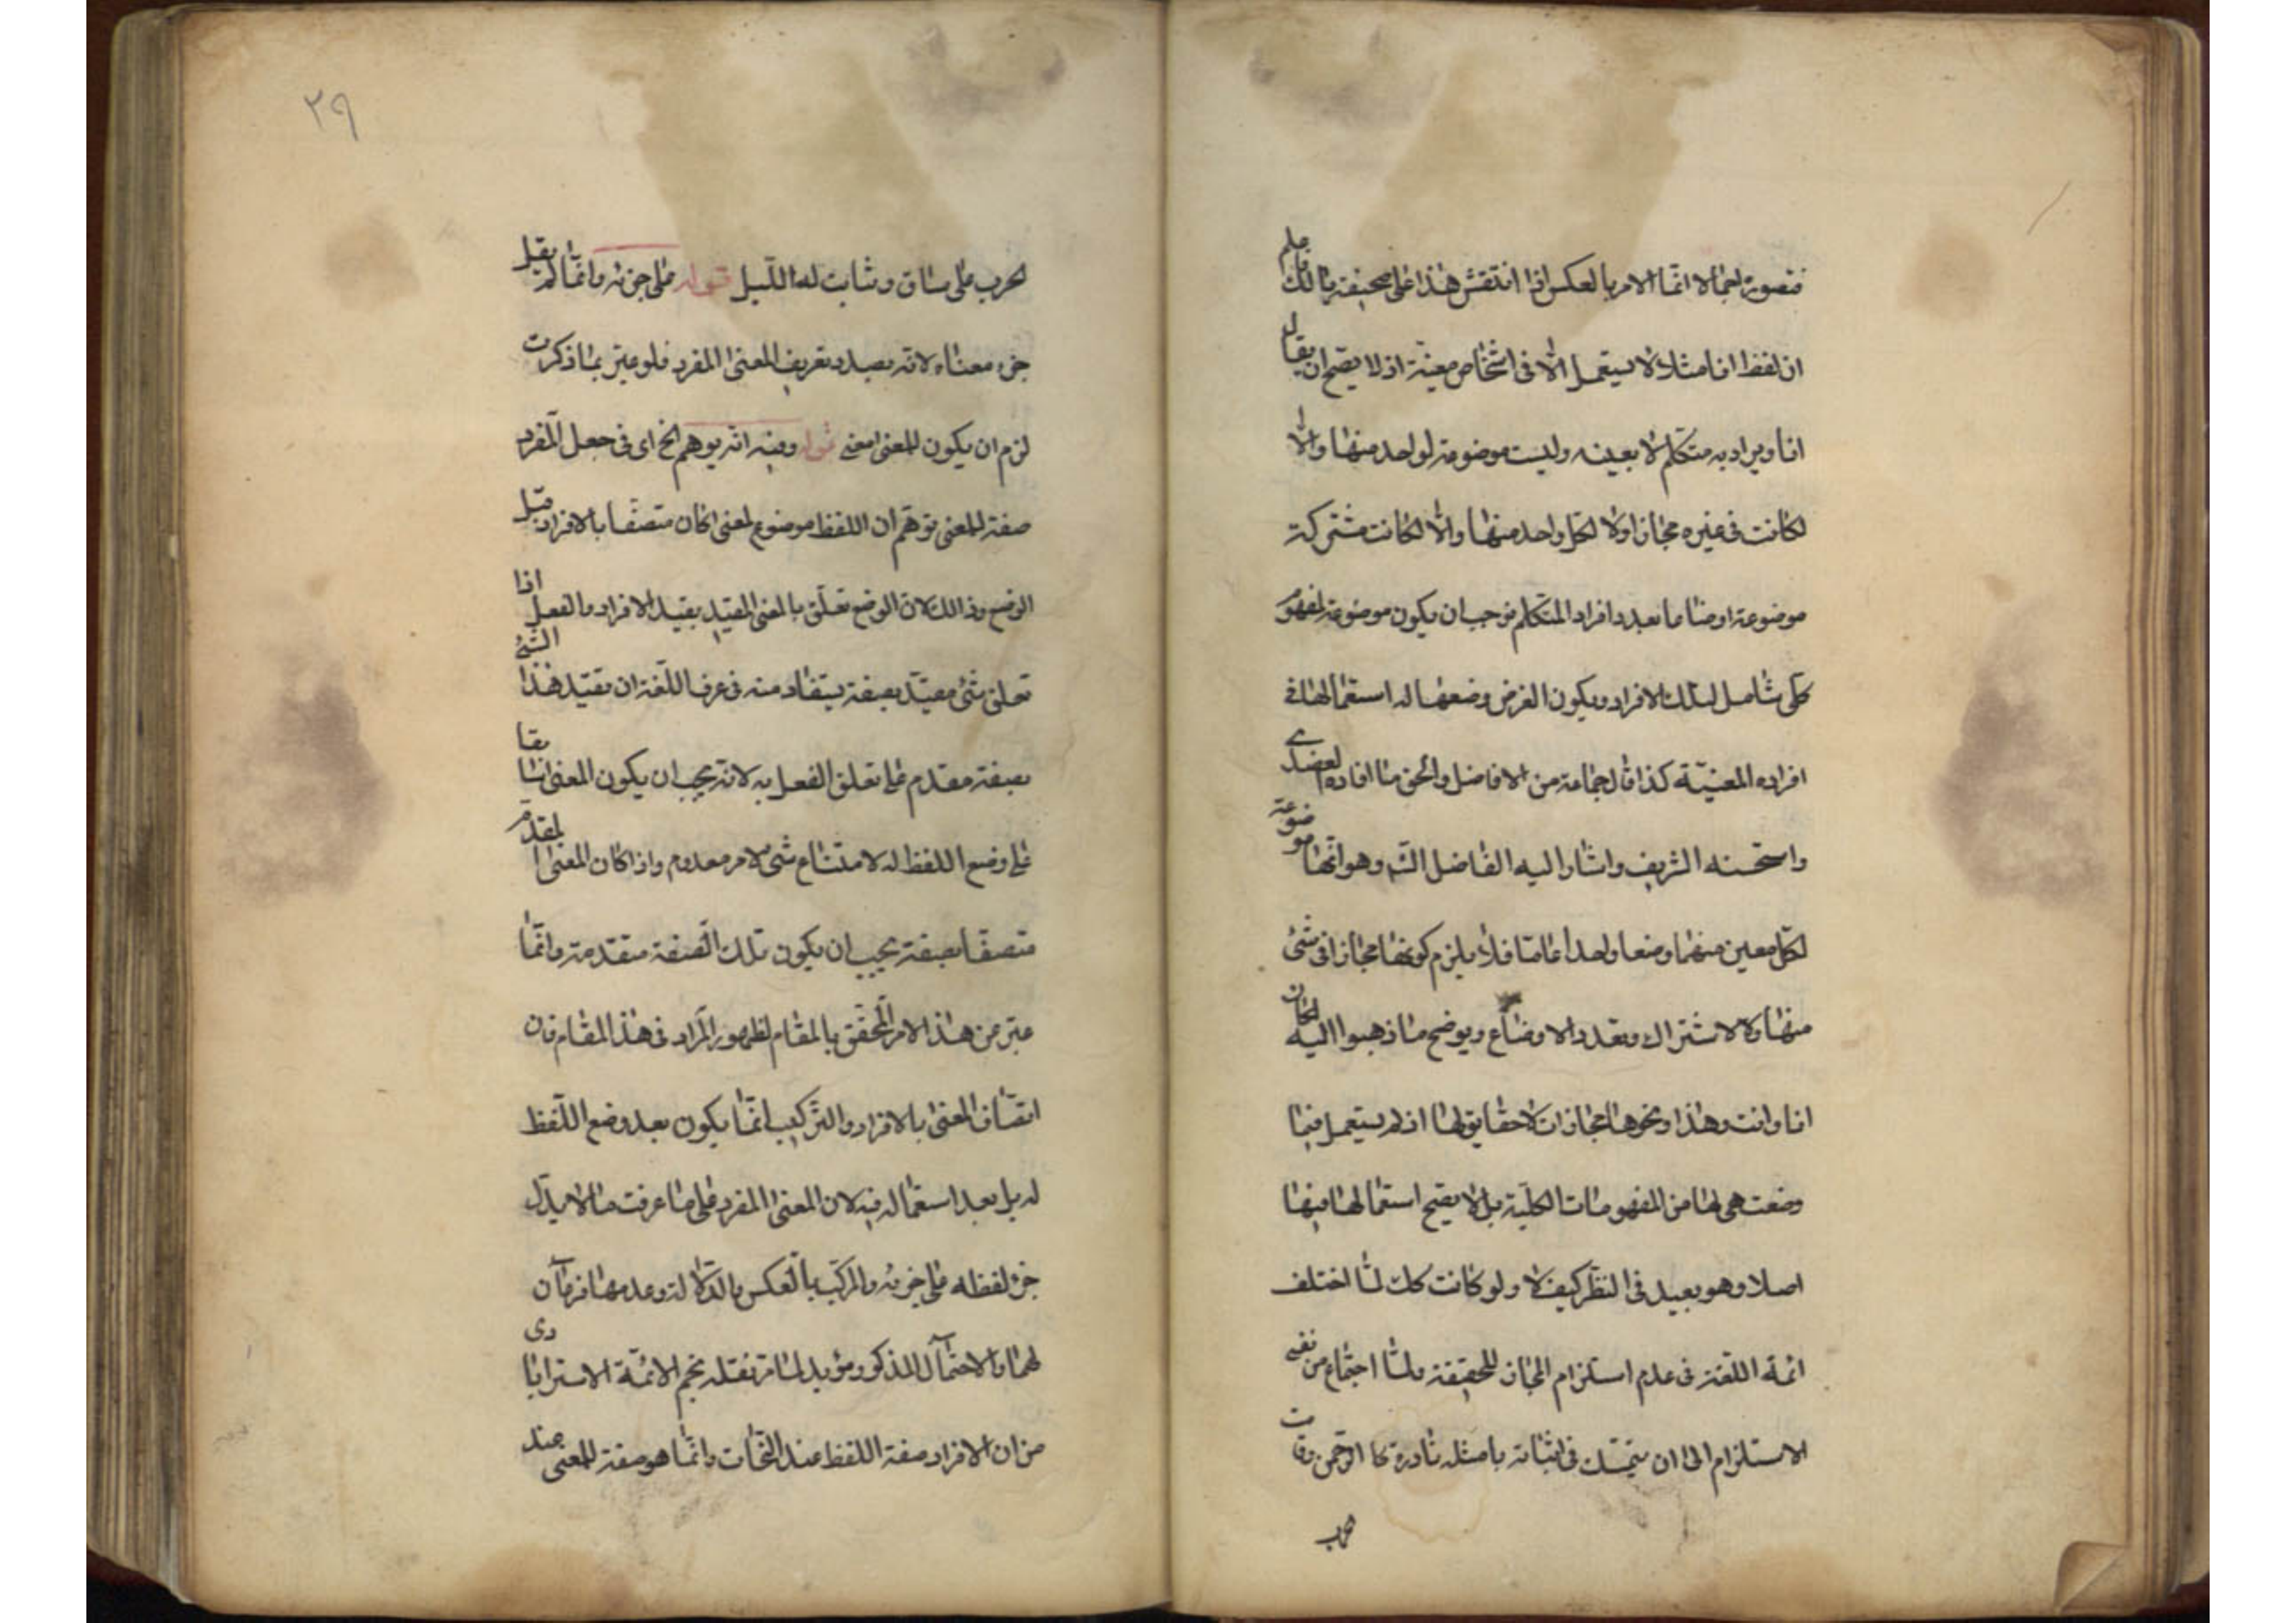 فتصوره اجمالا انما الامر بالعكس فاذا انتقش هذا على صحيفة بالك فاعلم
ان لفظ انا مثلا لا يستعمل الا فى اشخاص معينة اذ لا يصح ان يقال
انا ويراد به متكلم لا بعينه وليست موضوعة لواحد منها والا
لكانت فى غيره مجازا ولا لكل واحد منها والا لكانت مشتركة
موضوعة اوضاعا بعدد افراد المتكلم فوجب ان يكون موضوعة لمفهوم
كلى شامل لتلك الافراد ويكون الغرض وضعها له استعمالها فى
افراده المعنيّة كذا قال جماعة من الافاضل والحق ما افاده العضدى
واستحسنه الشريف واشار اليه الفاضل الش وهو انها موضوعة
لكل معين منها وضعا واحدا عاما فلا يلزم كونها مجازا فى شئ
منها ولا الاشتراك وتعدد الاوضاع ويوضح ما ذهبوا اليه لكان
انا وانت وهذا ونحوها مجازات لا حقايق لها اذ لم يستعمل فيما
وضعت هى لها من المفهومات الكلية بل لا يصح استعمالها فيها
اصلا وهو بعيد فى النظر كيف لا ولو كانت كك لما اختلف
ائمة اللغة فى عدم استلزام المجاز للحقيقة ولما احتاج من نفى
الاستلزام الى ان يتمسك فى اثباته بامثلة نادرة كا الرحمن وقامت
الحرب
٢٩
لحرب على ساق وشابت لمة الليل قوله على جزئه وانما لم يقل
جزء معناه لانه بصدد تعريف المعنى المفرد فلو عبر بما ذكرت
لزم ان يكون للمعنى معنى قوله وفيه انه يوهم الخ اى فى جعل المفرد
صفة للمعنى توهم ان اللفظ موضوع لمعنى كان متصفا بالافراد قبل
الوضع وذالك لان الوضع تعلق بالمعنى المقيد بقيد الافراد والفعل اذا
تعلق بشئ مقيد بصفة يستفاد منه فى عرف اللغة ان تقيد هذا الشئ
بصفة مقدم على تعلق الفعل به لانه يجب ان يكون المعنى سابقا
على وضع اللفظ له لامتناع شئ لامر معدوم واذا كان المعنى المقدم
متصفا بصفة يجب ان يكون تلك الصفة متقدمة وانما
عبر عن هذا الامر المحقق بالمقام لظهور المراد فى هذا المقام فان
اتصاف المعنى بالافراد والتركيب انما يكون بعد وضع اللفظ
له بل بعد استعماله فيه لان المعنى المفرد على ما عرفت ما لا يدل
جزء لفظه على جزئه والمركب بالعكس والدلالة وعدمها فرعان
لهما والاحتمال المذكور مؤيد لما مر نقله نجم الائمة الاسترابادى
من ان الافراد صفة اللفظ عند النحات وانما هو صفة للمعنى عند